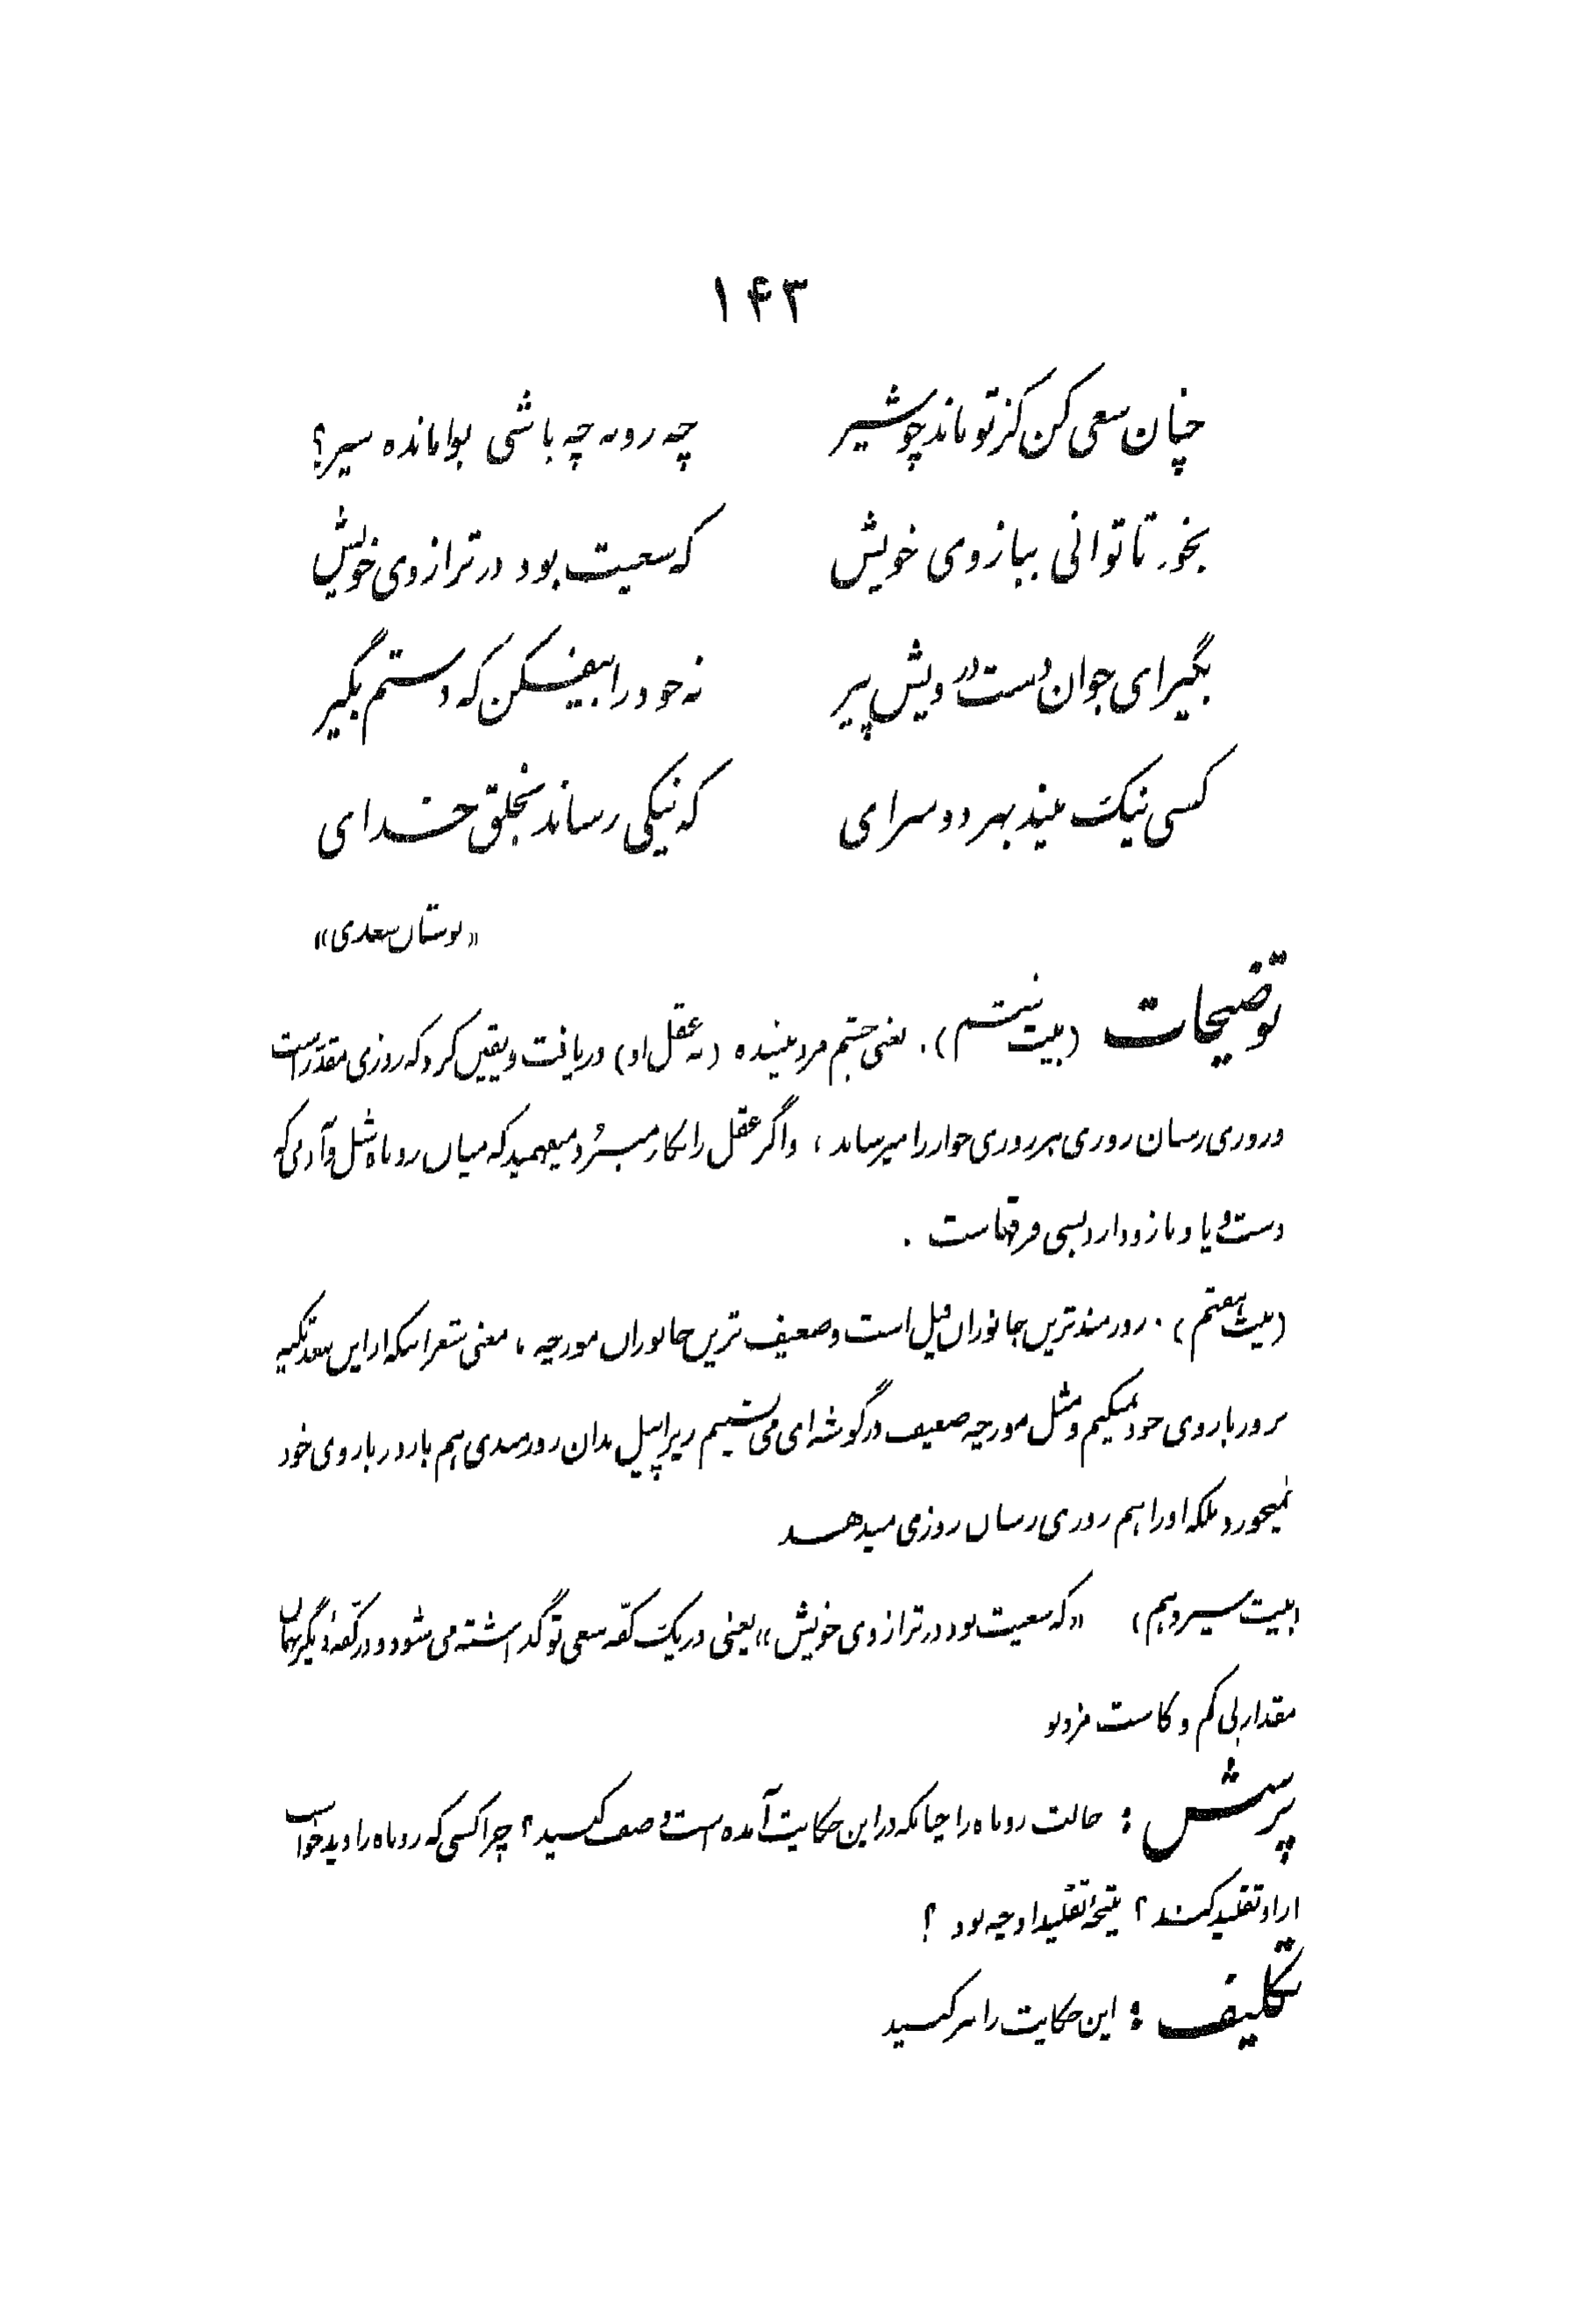 ۱۴۳
چنان سعی کن کز تو ماند چو شیر چه روبه چه باشی بوامانده سیر؟
بخور تا توانی ببازوی خویش که سعیت بود در ترازوی خویش
بگیر ای جوان دست درویش پیر نه خود را بیفکن که دستم بگیر
کسی نیک بیند بهر دو سرای که نیکی رساند بخلق خدای
«بوستان سعدی»
توضیحات (بیت ششم). یعنی چشم مرد بیننده (نه عقل او) دریافت و یقین کرد که روزی مقدر است
و روزی رسان روزی هر روزی خوار را میرساند، و اگر عقل را بکار میبرد میفهمید که میان روباه شل و آدمی که
دست و پا و بازو دارد بسی فرقهاست.
(بیت هفتم). زورمندترین جانوران فیل است و ضعیف ترین جانوران مورچه، معنی شعر اینکه از این ببعد تکیه
بزور بازوی خود نمیکنم و مثل مورچه ضعیف در گوشه ای می نشینم زیرا پیل بدان زورمندی هم بازور بازوی خود
نمیخورد بلکه او را هم روزی رسان روزی میدهد
(بیت سیزدهم) «که سعیت بود در ترازوی خویش» یعنی در یک کفه سعی تو گذاشته می شود و در کفه دیگر بهمان
مقدار بی کم و کاست مزد تو
پرسش: حالت روباه را چنانکه در این حکایت آمده است وصف کنید؟ چرا کسی که روباه را دید خواست
از او تقلید کند؟ نتیجه تقلید او چه بود؟
تکلیف: این حکایت را نثر کنید